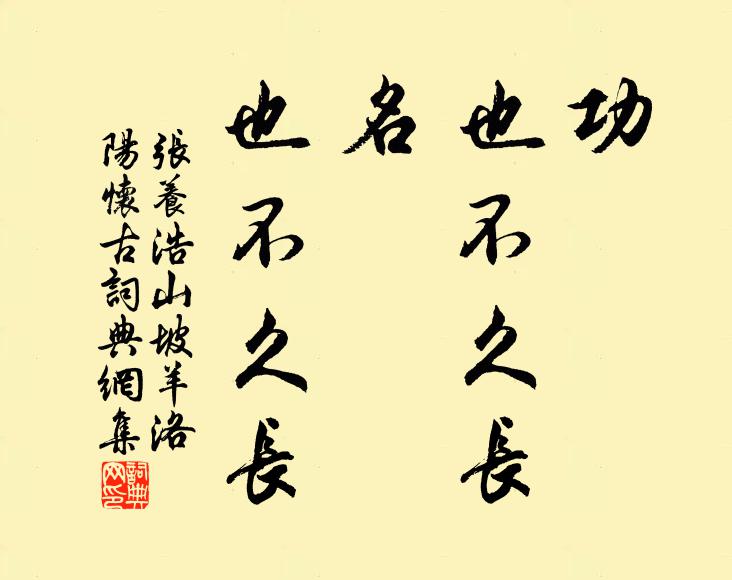 功
也不久長
名
也不久長
張養浩山坡羊洛
陽懷古詞典網集
詞典
网印